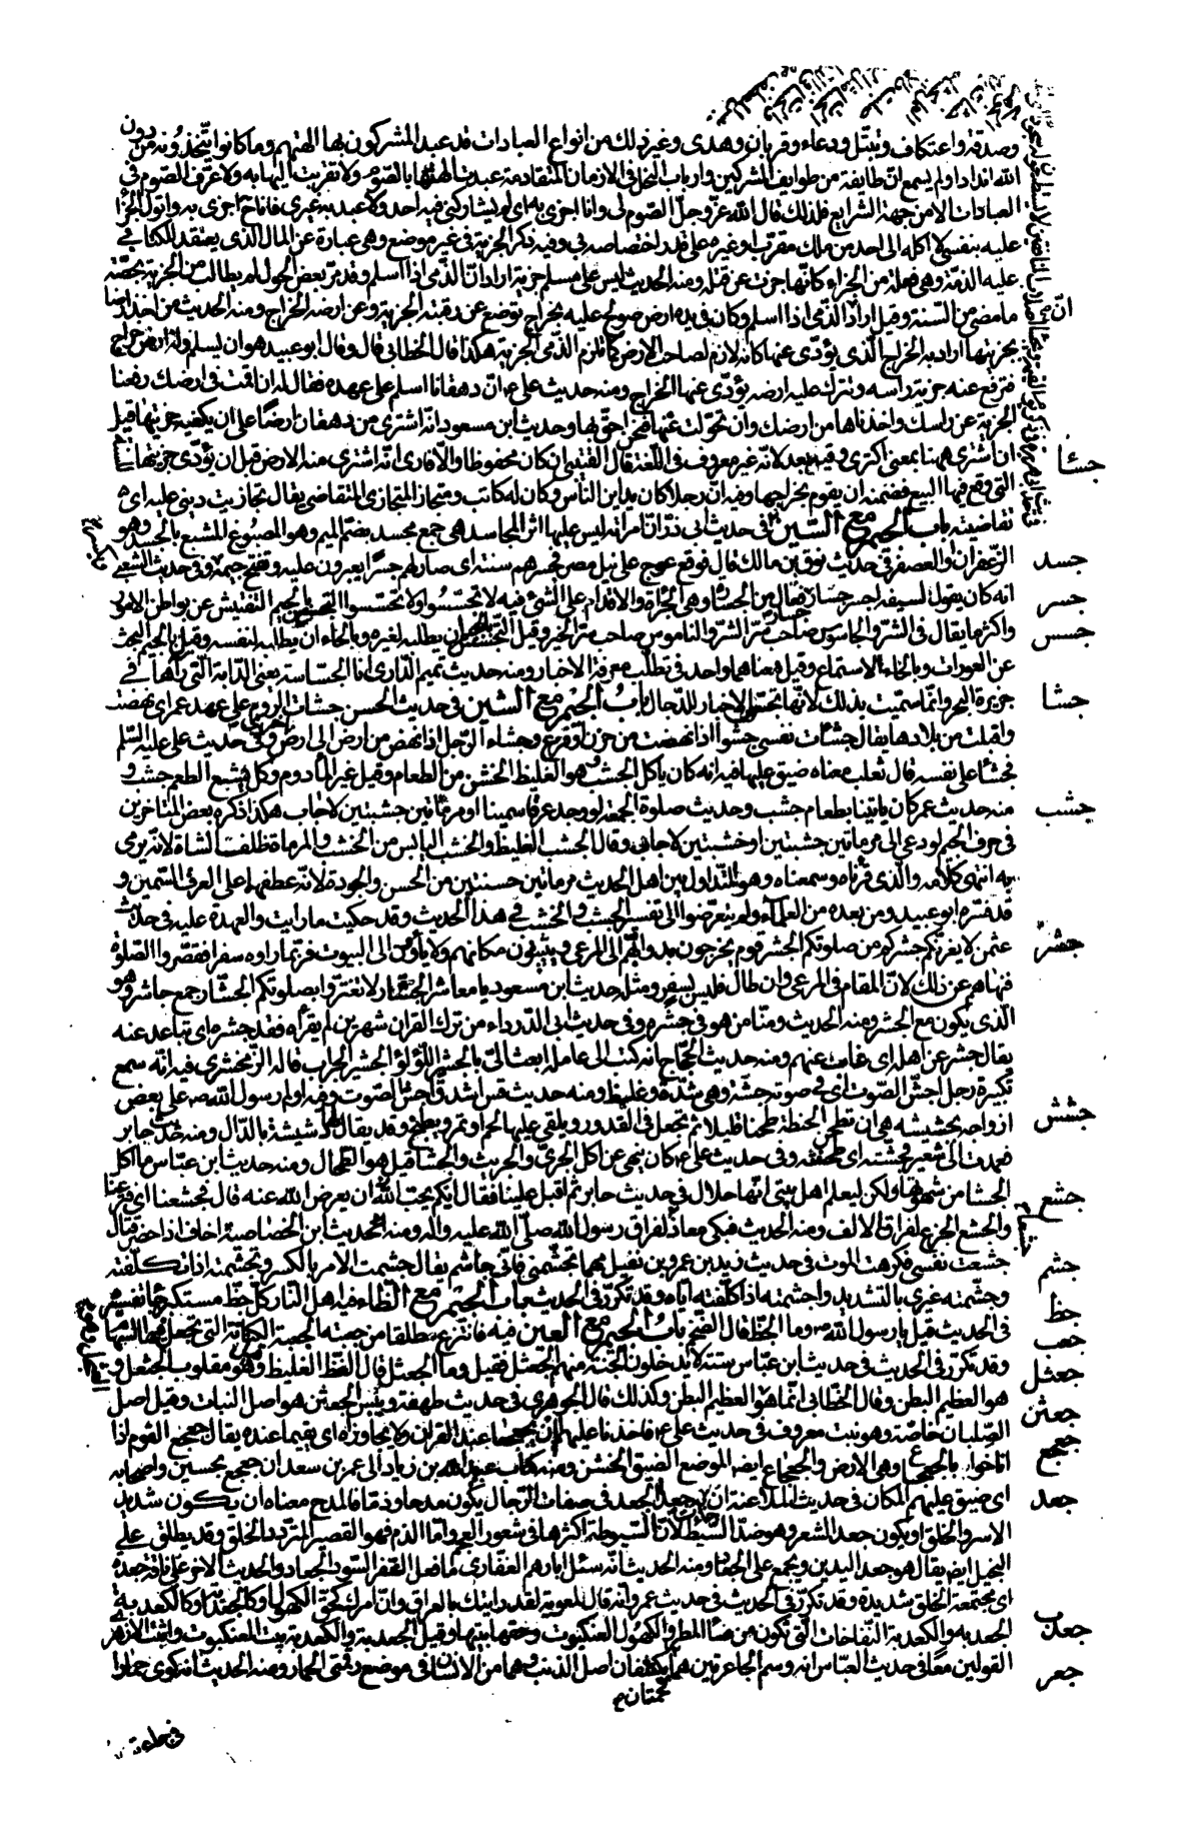 وصدقة واعتكاف وتبتّل ودعاء وقربان وهدى وغير ذلك من انواع العبادات قد عبد المشركون بها الهتهم وما كانوا يتّخذونه من دون
الله اندادا ولم يسمع انّ طايفة من طوايف المشركين وارباب النحل فى الازمان المتقادمة عبدت الهتها بالصّوم ولا تقربت اليها به ولا عرف الصّوم فى
العبادات الا من جهة الشرايع فلذلك قال الله عزّ وجلّ الصّوم لى وانا اجزى به اى لم يشاركنى فيه احد ولا عبد به غيرى فانا ح اجزى به واتولّى الجزا
عليه بنفسى لا اكله الى احد من ملك مقرب او غيره على قدر اختصاصه بى وفيه ذكر الجزية فى غير موضع وهى عبارة عن المال الذى يعتقد للكتابى
عليه الذمّة وهى فعلة من الجزاء كانّها جزت عن قتله ومنه الحديث ليس على مسلم جزية اراد انّ الذّمى اذا اسلم وقد مرّ بعض الحول لم يطالب من الجزية بحصّة
ما مضى من السّنة وقيل اراد الذّمى اذا اسلم وكان فى يده ارض صولح عليه بخراج توضع عن رقبته الجزية وعن ارضه الخراج ومنه الحديث من اخذ ارضا
بجزيتها اراد به الخراج الّذى يؤدّى عنها كانه لازم لصاحب الارض كما تلزم الذمى الجزية هكذا قال الخطابى قال وقال ابو عبيد هو ان يسلم وله ارض خراج
فترفع عنه جزية راسه وتترك عليه ارضه يؤدّى عنها الخراج ومنه حديث على ع انّ دهقانا اسلم على عهده فقال له ان اقمت فى ارضك رفعنا
الجزية عن راسك واخذناها من ارضك وان تحوّلت عنها فنحن احقّ بها وحديث ابن مسعود انّه اشترى من دهقان ارضا على ان يكفيه جزيتها قيل
ان اشترى ههنا بمعنى اكترى وفيه بعد لانّه غير معروف فى اللّغة قال القتيبى ان كان محفوظا والّا فارى انّه اشترى منه الارض قبل ان يؤدّى جزيتها
التى وقع فيها البيع فضمنه ان يقوم بخراجها وفيه انّ رجلا كان يداين النّاس وكان له كاتب ومتجاز المتجازى المتقاضى يقال تجازيت دينى عليه اى
تقاضيته باب الجيم مع السّين فى حديث ابى ذرّ انّ امراته ليس عليها اثر المجاسد هى جمع مجسد بضمّ الميم وهو المصبوغ المشبع بالجسد وهو
جسد الزّعفران والعصفر فى حديث نوف بن مالك قال فوقع عوج على نيل مصر فجسرهم سنة اى صار لهم جسرا يعبرون عليه وتفتح جيمه وفى حديث الشعبى
جسر انه كان يقول لسيفه اجسر جسار فعال من الجسارة وهى الجراة والاقدام على الشئ فيه لا تجسّسوا ولا تحسّسوا التجسس بالجيم التفتيش عن بواطن الامور
جسس واكثر ما يقال فى الشرّ والجاسوس صاحب سرّ الشرّ والناموس صاحب سرّ الخير وقيل التجسّس ان يطلبه لغيره وبالحاء ان يطلبه لنفسه وقيل بالجيم البحث
عن العورات وبالحاء الاستماع وقيل معناهما واحد فى تطلّب معرفة الاخبار ومنه حديث تميم الدّارى انا الجسّاسة يعنى الدّابة الّتى رآها فى
جشا جزيرة البحر وانّما سمّيت بذلك لانّها تجسّ الاخبار للدّجال باب الجيم مع الشين فى حديث الحسن جشات الروم على عهد عمر اى نهضت
واقبلت من بلادها يقال جشأت نفسى جشوأ اذا نهضت من حزن او فزع وجشاء الرّجل اذا نهض من ارض الى ارض وفى حديث على عليه السّلم
فجشأ على نفسه قال ثعلب معناه ضيق عليها فيه انه كان ياكل الجشب هو الغليظ الخشن من الطعام وقيل غير المادوم وكل بشع الطعم جشب و
جشب منه حديث عمر كان ياتينا بطعام جشب وحديث صلوة الجمعة لو وجد عرقا سمينا او مرماتين جشبتين لاجاب هكذا ذكره بعض المتاخرين
فى حرف الجيم لو دعى الى مرماتين جشبتين او خشبتين لاجاب وقال الجشب الغليظ والخشب اليابس من الخشب والمرماة ظلف الشاة لانه يرمى
به انتهى كلامه والّذى قرأناه وسمعناه وهو المتداول بين اهل الحديث مرماتين حسنتين من الحسن والجودة لانّه عطفهما على العرق السّمين و
قد فسّره ابو عبيد ومن بعده من العلماء ولم يتعرّضوا الى تفسير الجشب او الخشب فى هذا الحديث وقد حكيت ما رايت والعهدة عليه فى حديث
جشر عثمن لا يغرّنّكم جشركم من صلوتكم الجشر قوم يخرجون بدوابّهم الى المرعى ويبيتون مكانهم ولا ياوون الى البيوت فربّما راوه سفرا فقصّروا الصّلوة
فنهاهم عن ذلك لانّ المقام فى المرعى وان طال فليس بسفر ومثله حديث ابن مسعود يا معاشر الجشّار لا تغترّوا بصلوتكم الجشّار جمع جاشر وهو
الّذى يكون مع الجشر ومنه الحديث ومنّا من هو فى جشره وفى حديث ابى الدّرداء من ترك القران شهرين لم يقرأه فقد جشره اى تباعد عنه
يقال جشر عن اهله اى غاب عنهم ومنه حديث الحجّاج انه كتب الى عامله ابعث الىّ بالجشير اللّؤلؤ الجشير الجراب قاله الزّمخشرى فيه انّه سمع
تكبيرة رجل اجشّ الصّوت اى فى صوته جشّة وهى شدّة وغلظ ومنه حديث قس اشدق اجشّ الصّوت وفيه اولم رسول الله ص على بعض
جشش ازواجه بجشيشة هى ان تطحن الحنطة طحنا قليلا ثم تجعل فى القدور ويلقى عليها لحم او تمر ويطبخ وقد يقال لها دشيشة بالدّال ومنه حديث جابر
فعمدت الى شعير فجشته اى طحنته وفى حديث على ع كان ينهى عن اكل الجرّى والجريث والجشا قيل هو الطحال ومنه حديث ابن عبّاس ما اكل
جشع الجشا من شهوتها ولكن ليعلم اهل بيتى انّها حلال فى حديث جابر ثم اقبل علينا فقال ايّكم يحبّ ان يعرض الله عنه قال فجشعنا اى فزعنا
والجشع الجزع لفراق الالف ومنه الحديث فبكى معاذ جشعا لفراق رسول الله صلّى الله عليه واله ومنه الحديث ابن الخصاصية اخاف اذا حضر قتال
جشم جشعت نفسى فكرهت الموت فى حديث زيد بن عمرو بن نفيل مهما تجشّمنى فانّى جاشم يقال جشمت الامر بالكسر وتجشّمته اذا تكلّفته
جظ وجشّمته غيرى بالتشديد واجشمته اذا كلّفته ايّاه وقد تكرّر فى الحديث باب الجيم مع الظاء فيه اهل النّار كلّ جظّ مستكبر
جعب فى الحديث قيل يا رسول الله وما الجظّ قال الضّخم باب الجيم مع العين فيه فانتزع طلقا من جعبته الجعبة الكنانة التى تجعل فيها السّهام
جعثل وقد تكرّر فى الحديث فى حديث ابن عبّاس ستّة لا يدخلون الجنّة منهم الجعثل فقيل وما الجعثل قال الفظّ الغليظ وهو مقلوب الجثعل و
هو العظيم البطن وقال الخطابى انّما هو العظيم البطن وكذلك قال الجوهرى فى حديث طهفة ويبس الجعثن هو اصل النبات وقيل اصل
جعثن الصّليان خاصّة وهو نبت معروف فى حديث على ع فاخذنا عليهما ان يجعجعا عند القران ولا يجاوزاه اى يقيما عنده يقال جعجع القوم اذا
جعجع اناخوا بالجعجاع وهى الارض والجعجاع ايضا الموضع الضيق الخشن ومنه كتاب عبيد الله بن زياد الى عمر بن سعد ان جعجع بحسين واصحابه
جعد اى ضيق عليهم المكان فى حديث الملاعنة ان جاءت به جعدا الجعد فى صفات الرّجال يكون مدحا وذمّا فالمدح معناه ان يكون شديد
الاسر والخلق او يكون جعد الشعر وهو ضدّ السّبط لانّ السّبوطة اكثرها فى شعور العجم وامّا الذم فهو القصير المتردّد الخلق وقد يطلق على
البخيل ايضا يقال هو جعد اليدين ويجمع على الجعاد ومنه الحديث انّه سئل ابا رهم الغفارى ما فعل النفر السّود الجعاد والحديث الاخر على ناقة جعدة
اى مجتمعة الخلق شديدة وقد تكرّر فى الحديث فى حديث عمرو انّه قال لمعوية لقد رايتك بالعراق وانّ امرك كحقّ الكهول او كالجعدبة او كالكعدبة
جعدب الجعدبة والكعدبة النّفاخات الّتى تكون من ماء المطر والكهول العنكبوت وحقها بيتها وقيل الجعدبة والكعدبة بيت العنكبوت واثبت الازهرى
جعر القولين معا فى حديث العبّاس انه وسم الجاعرتين هما لحمتان يكتنفان اصل الذنب وهما من الانسان فى موضع رقمتى الحمار ومنه الحديث انه كوى حمارا
فى جاعرتيه